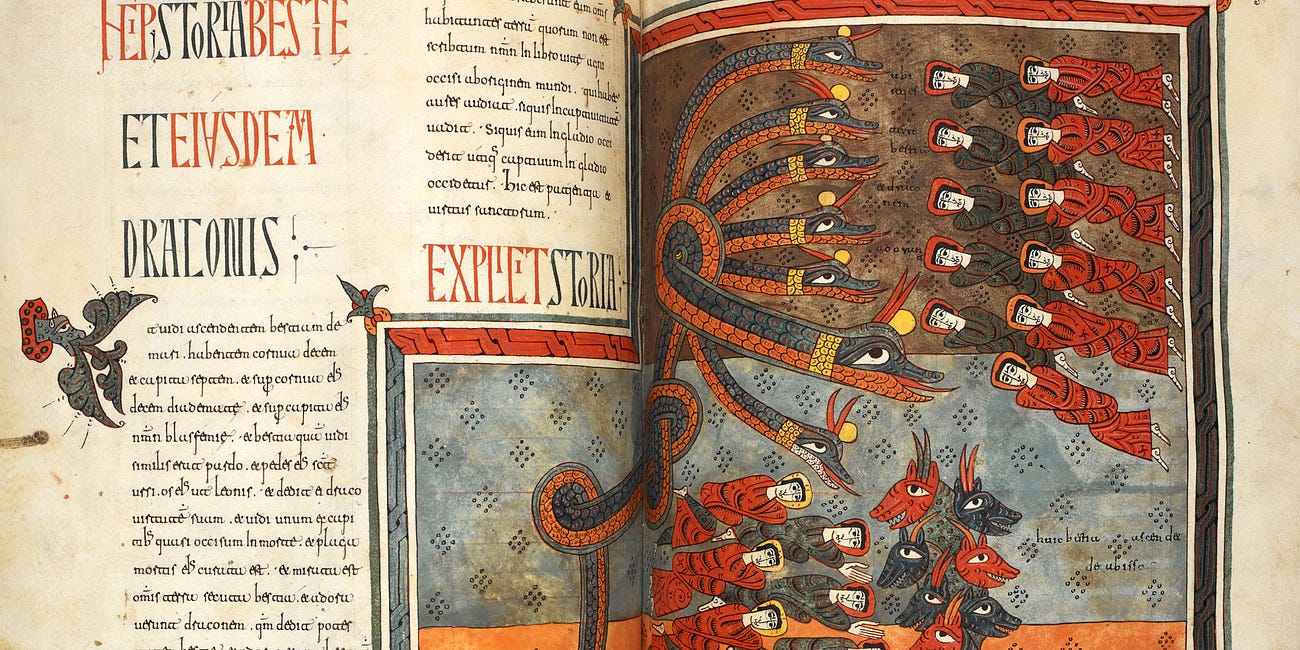 STORIA BESTIE
ET EIUSDEM
DRACONIS
t uidi ascendentem bestiam de
mari. habentem cornua decem
& capita septem. & sup cornua eius
decem diademate. & sup capita eius
nmn blasfemie. & bestia qua uidi
similis erat pardo. & pedes eius sicut
ussi. os eius ut leonis. & dedit ei draco
uirtute suam. & uidi unum ex capi
quasi occisum In morte. & plaga
mortis eius curata est. & mirata est
omis terra secuta bestia. & adora
uerunt draconem. qm dedit potes
habitantes terra quorum non est
scribtum nmn In libro uite agni
occisi ab origine mundi. qui habet
aures audiat. Si quis In captiuitate
uadit. Si quis eum In gladio occi
derit utiq captiuum In gladio
occidetur. hic est patientia &
uirtus sanctorum.
EXPLICIT STORIA
ubi
reges
terre
& draco
nem
adorant
bestia ascende
de abisso